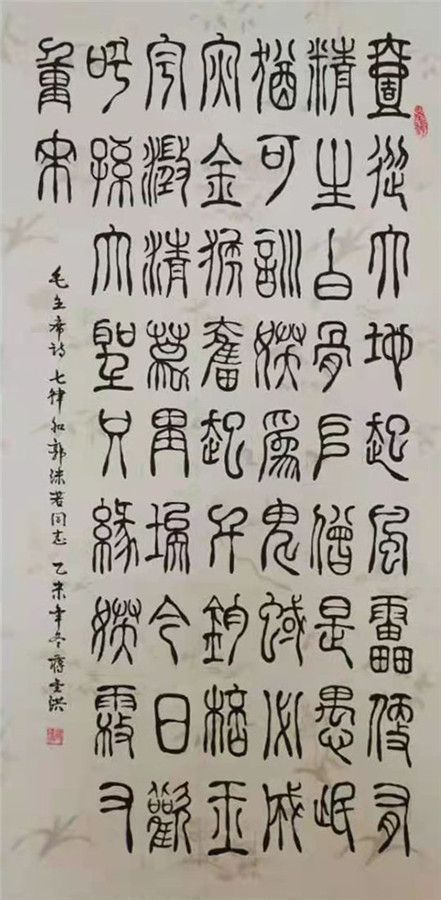 壹從大地起風靁便有
精生白骨𠂤僧是愚氓
猶可訓妖為鬼蜮必成
灾金猴奮起千鈞棓玉
宇澂清萬里埃今日歡
呼孫大聖只緣妖霧又
重來
毛主席诗七律和郭沫若同志 乙未年冬